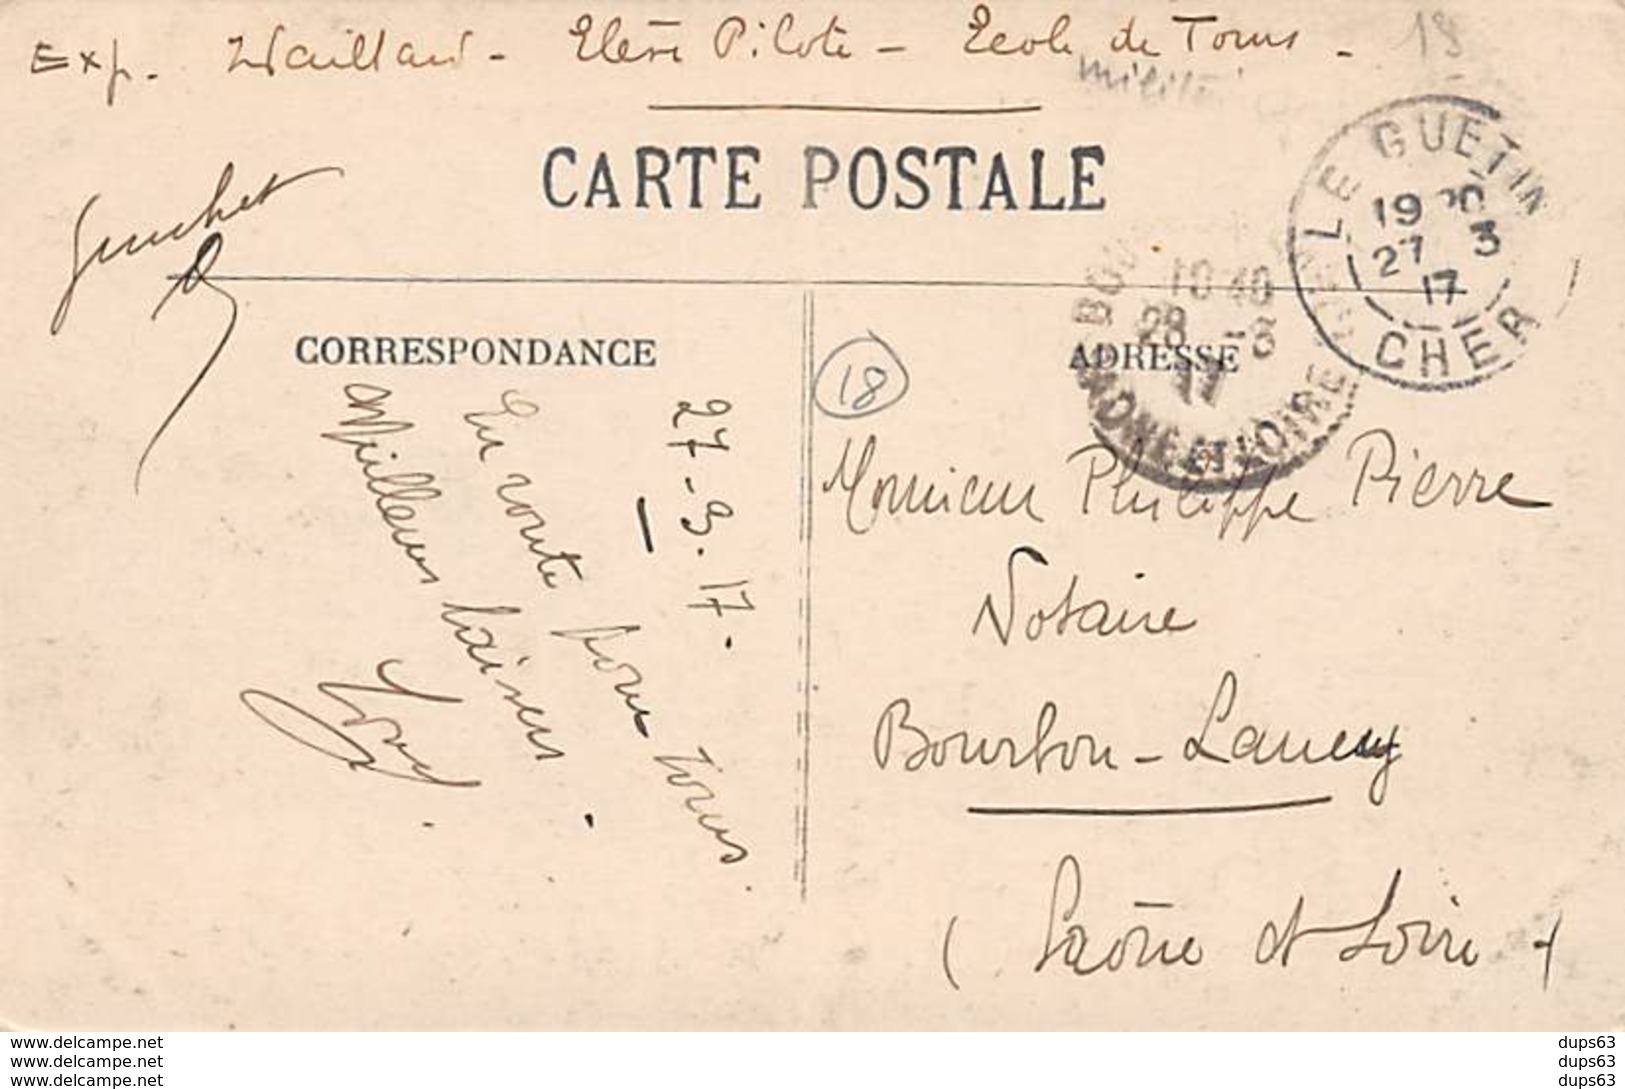 Exp. Waillard - Elève Pilote - Ecole de Tours -
18
CARTE POSTALE
LE GUETIN
19 20
27 3
17
CHER
10 40
28 -3
17
SAONE ET LOIRE
CORRESPONDANCE
ADRESSE
18
27-3.17.
En route pour Tours.
Meilleurs baisers.
Monsieur Philippe Pierre
Notaire
Bourbon-Lancy
(Saône et Loire)
www.delcampe.net
www.delcampe.net
www.delcampe.net
dups63
dups63
dups63